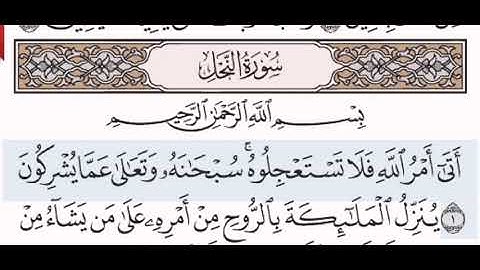 سُورَةُ النَّحْلِ
بِسْمِ اللَّهِ الرَّحْمَٰنِ الرَّحِيمِ
أَتَىٰٓ أَمْرُ ٱللَّهِ فَلَا تَسْتَعْجِلُوهُ ۚ سُبْحَٰنَهُۥ وَتَعَٰلَىٰ عَمَّا يُشْرِكُونَ
١ يُنَزِّلُ ٱلْمَلَٰٓئِكَةَ بِٱلرُّوحِ مِنْ أَمْرِهِۦ عَلَىٰ مَن يَشَآءُ مِنْ